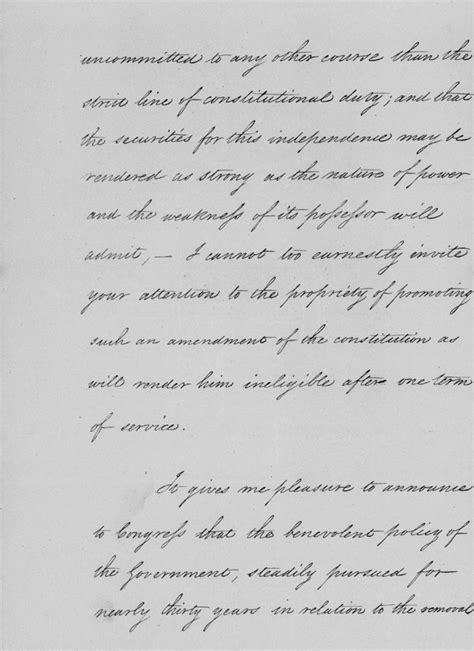 uncommitted to any other course than the
strict line of constitutional duty; and that
the securities for this independence may be
rendered as strong as the nature of power
and the weakness of its possessor will
admit, — I cannot too earnestly invite
your attention to the propriety of promoting
such an amendment of the constitution as
will render him ineligible after one term
of service.
It gives me pleasure to announce
to Congress that the benevolent policy of
the Government, steadily pursued for
nearly thirty years in relation to the removal